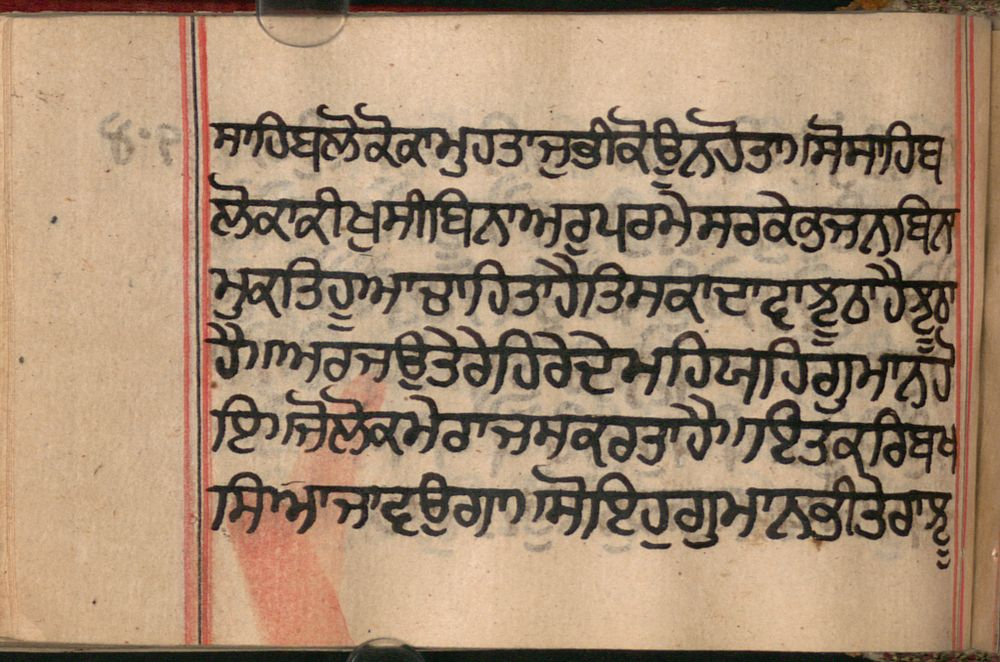 ਸਾਹਿਬਲੋਕੋਕਾਮੁਹਤਾਜੁਭੀਕੋਊਨਹੋਤਾ॥ਸੋਸਾਹਿਬ
ਲੋਕਾਕੀਖੁਸੀਬਿਨਾਅਰੁਪਰਮੇਸਰਕੇਭਜਨੁਬਿਨ
ਮੁਕਤਿਹੂਆਚਾਹਿਤਾਹੈਤਿਸਕਾਦਾਵਾਝੂਠਾਹੈਝੂਠਾ
ਹੈ॥ਅਰੁਜਉਤੇਰੇਹਿਰੇਦੇਮਹਿਯਹਿਗੁਮਾਨੁਹੋ
ਇ॥ਜੋਲੋਕਮੇਰਾਜਸਕਰਤਾਹੈ॥ਇਤਕਰਿਬਖ
ਸਿਆਜਾਵਉਗਾ॥ਸੋਇਹੁਗੁਮਾਨਭੀਤੇਰਾਝੂ